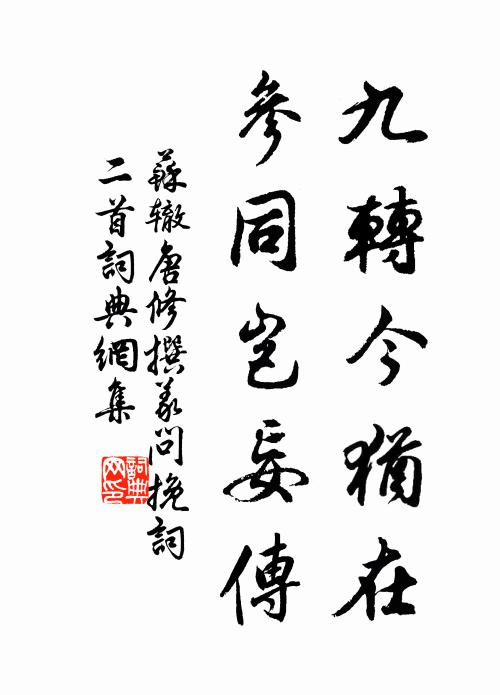 九轉今猶在
參同豈妄傳
蘇轍唐修撰義問挽詞
二首詞典網集
詞典
网印